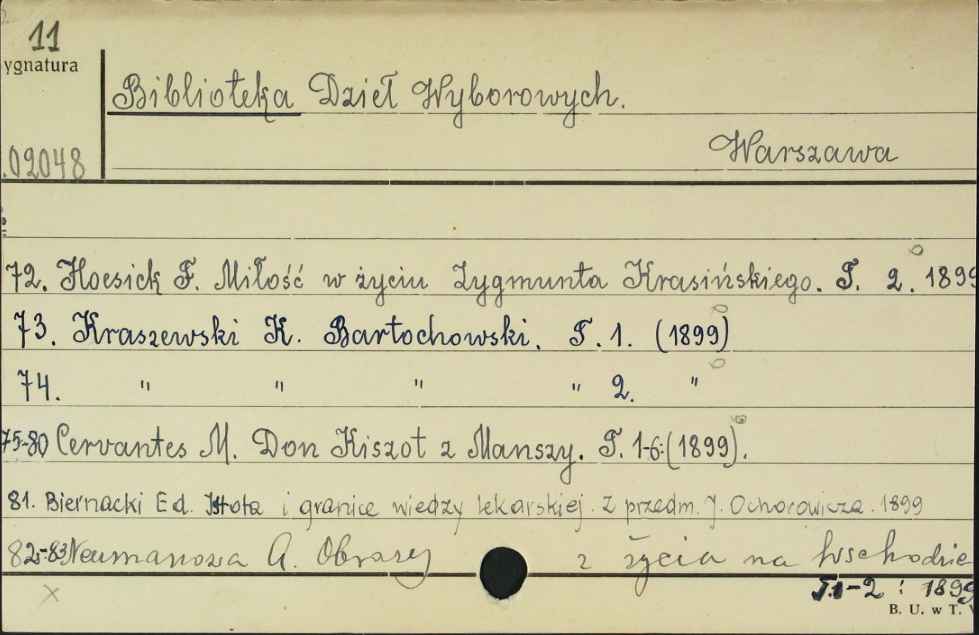 11
ygnatura
Biblioteka Dzieł Wyborowych.
Warszawa
.02048
72. Hoesick F. Miłość w życiu Zygmunta Krasińskiego. T. 2. 1899
73. Kraszewski K. Bartochowski. T. 1. (1899)
74. " " " " 2. "
75-80 Cervantes M. Don Kiszot z Manszy. T. 1-6. (1899).
81. Biernacki Ed. Istota i granice wiedzy lekarskiej. Z przedm. J. Ochorowicza. 1899
82-83 Neumanowa A. Obrazy z życia na Wschodzie
T.1-2 : 1899
X
B. U. w T.